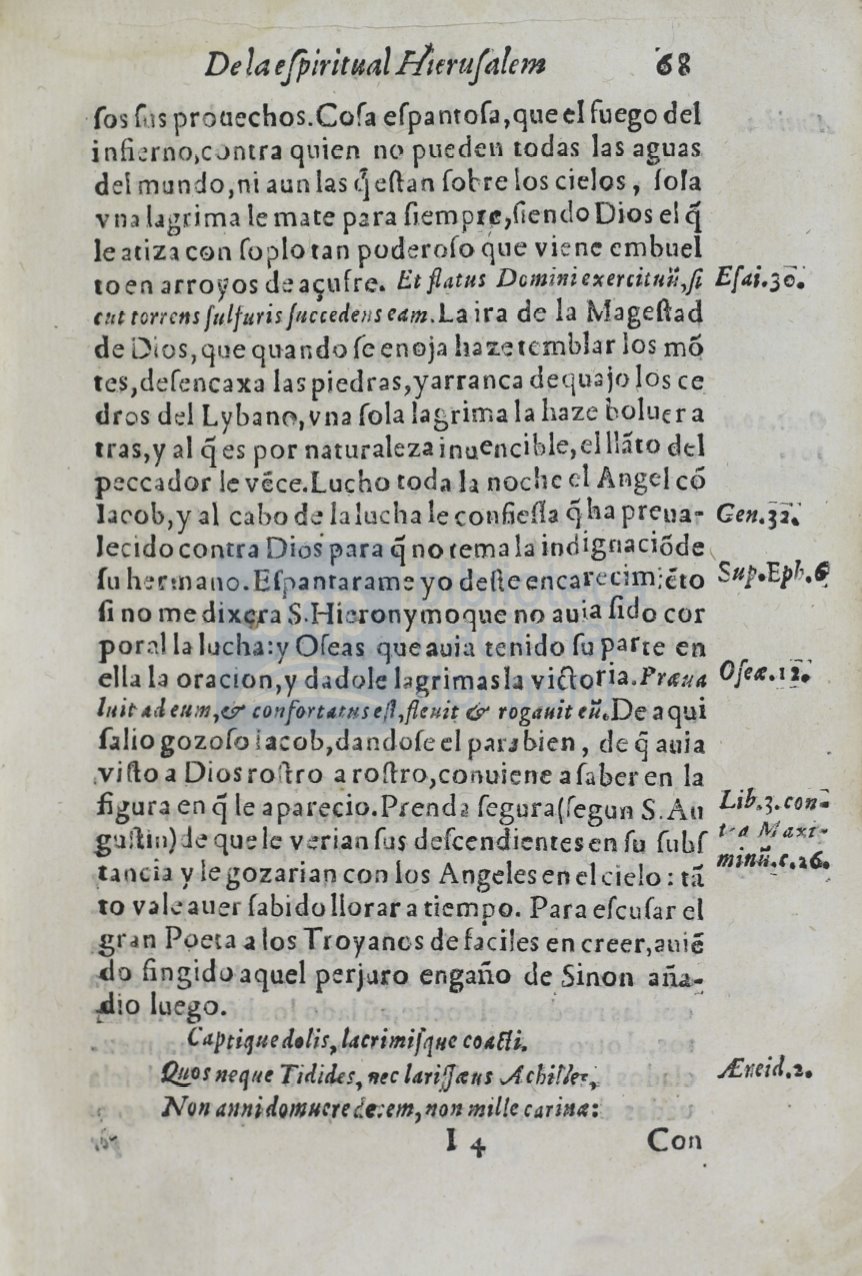 De la eſpiritual Hieruſalem 68
ſos ſus prouechos. Coſa eſpantoſa, que el fuego del
infierno, contra quien no pueden todas las aguas
del mundo, ni aun las q̃ eſtan ſobre los cielos, ſola
vna lagrima le mate para ſiempre, ſiendo Dios el q̃
le atiza con ſoplo tan poderoſo que viene embuel
to en arroyos de açufre. Et flatus Domini exercituũ, ſi
Eſai. 30.
cut torrens ſulfuris ſuccedens eam. La ira de la Mageſtad
de Dios, que quando ſe enoja haze temblar los mõ
tes, deſencaxa las piedras, y arranca de quajo los ce
dros del Lybano, vna ſola lagrima la haze boluer a
tras, y al q̃ es por naturaleza inuencible, el llãto del
peccador le vẽce. Lucho toda la noche el Angel cõ
Iacob, y al cabo de la lucha le confieſſa q̃ ha preua-
Gen. 32.
lecido contra Dios para q̃ no tema la indignaciõ de
ſu hermano. Eſpantarame yo deſte encarecimiẽto
Sup. Eph. 6
ſi no me dixera S. Hieronymo que no auia ſido cor
poral la lucha: y Oſeas que auia tenido ſu parte en
ella la oracion, y dadole lagrimas la victoria. Præua
Oſeæ. 12.
luit ad eum, & confortatus eſt, fleuit & rogauit eũ. De aqui
ſalio gozoſo Iacob, dandoſe el parabien, de q̃ auia
viſto a Dios roſtro a roſtro, conuiene a ſaber en la
figura en q̃ le aparecio. Prenda ſegura (ſegun S. Au
Lib. 3. con-
guſtin) de que le verian ſus deſcendientes en ſu ſubſ
tra Maxi-
tancia y le gozarian con los Angeles en el cielo: tã
minũ. c. 26.
to vale auer ſabido llorar a tiempo. Para eſcuſar el
gran Poeta a los Troyanos de faciles en creer, auiẽ
do fingido aquel perjuro engaño de Sinon aña-
dio luego.
Captique dolis, lacrimiſque coacti.
Quos neque Tidides, nec lariſſæus Achilles,
Æneid. 2.
Non anni domuere decem, non mille carinæ:
I 4 Con